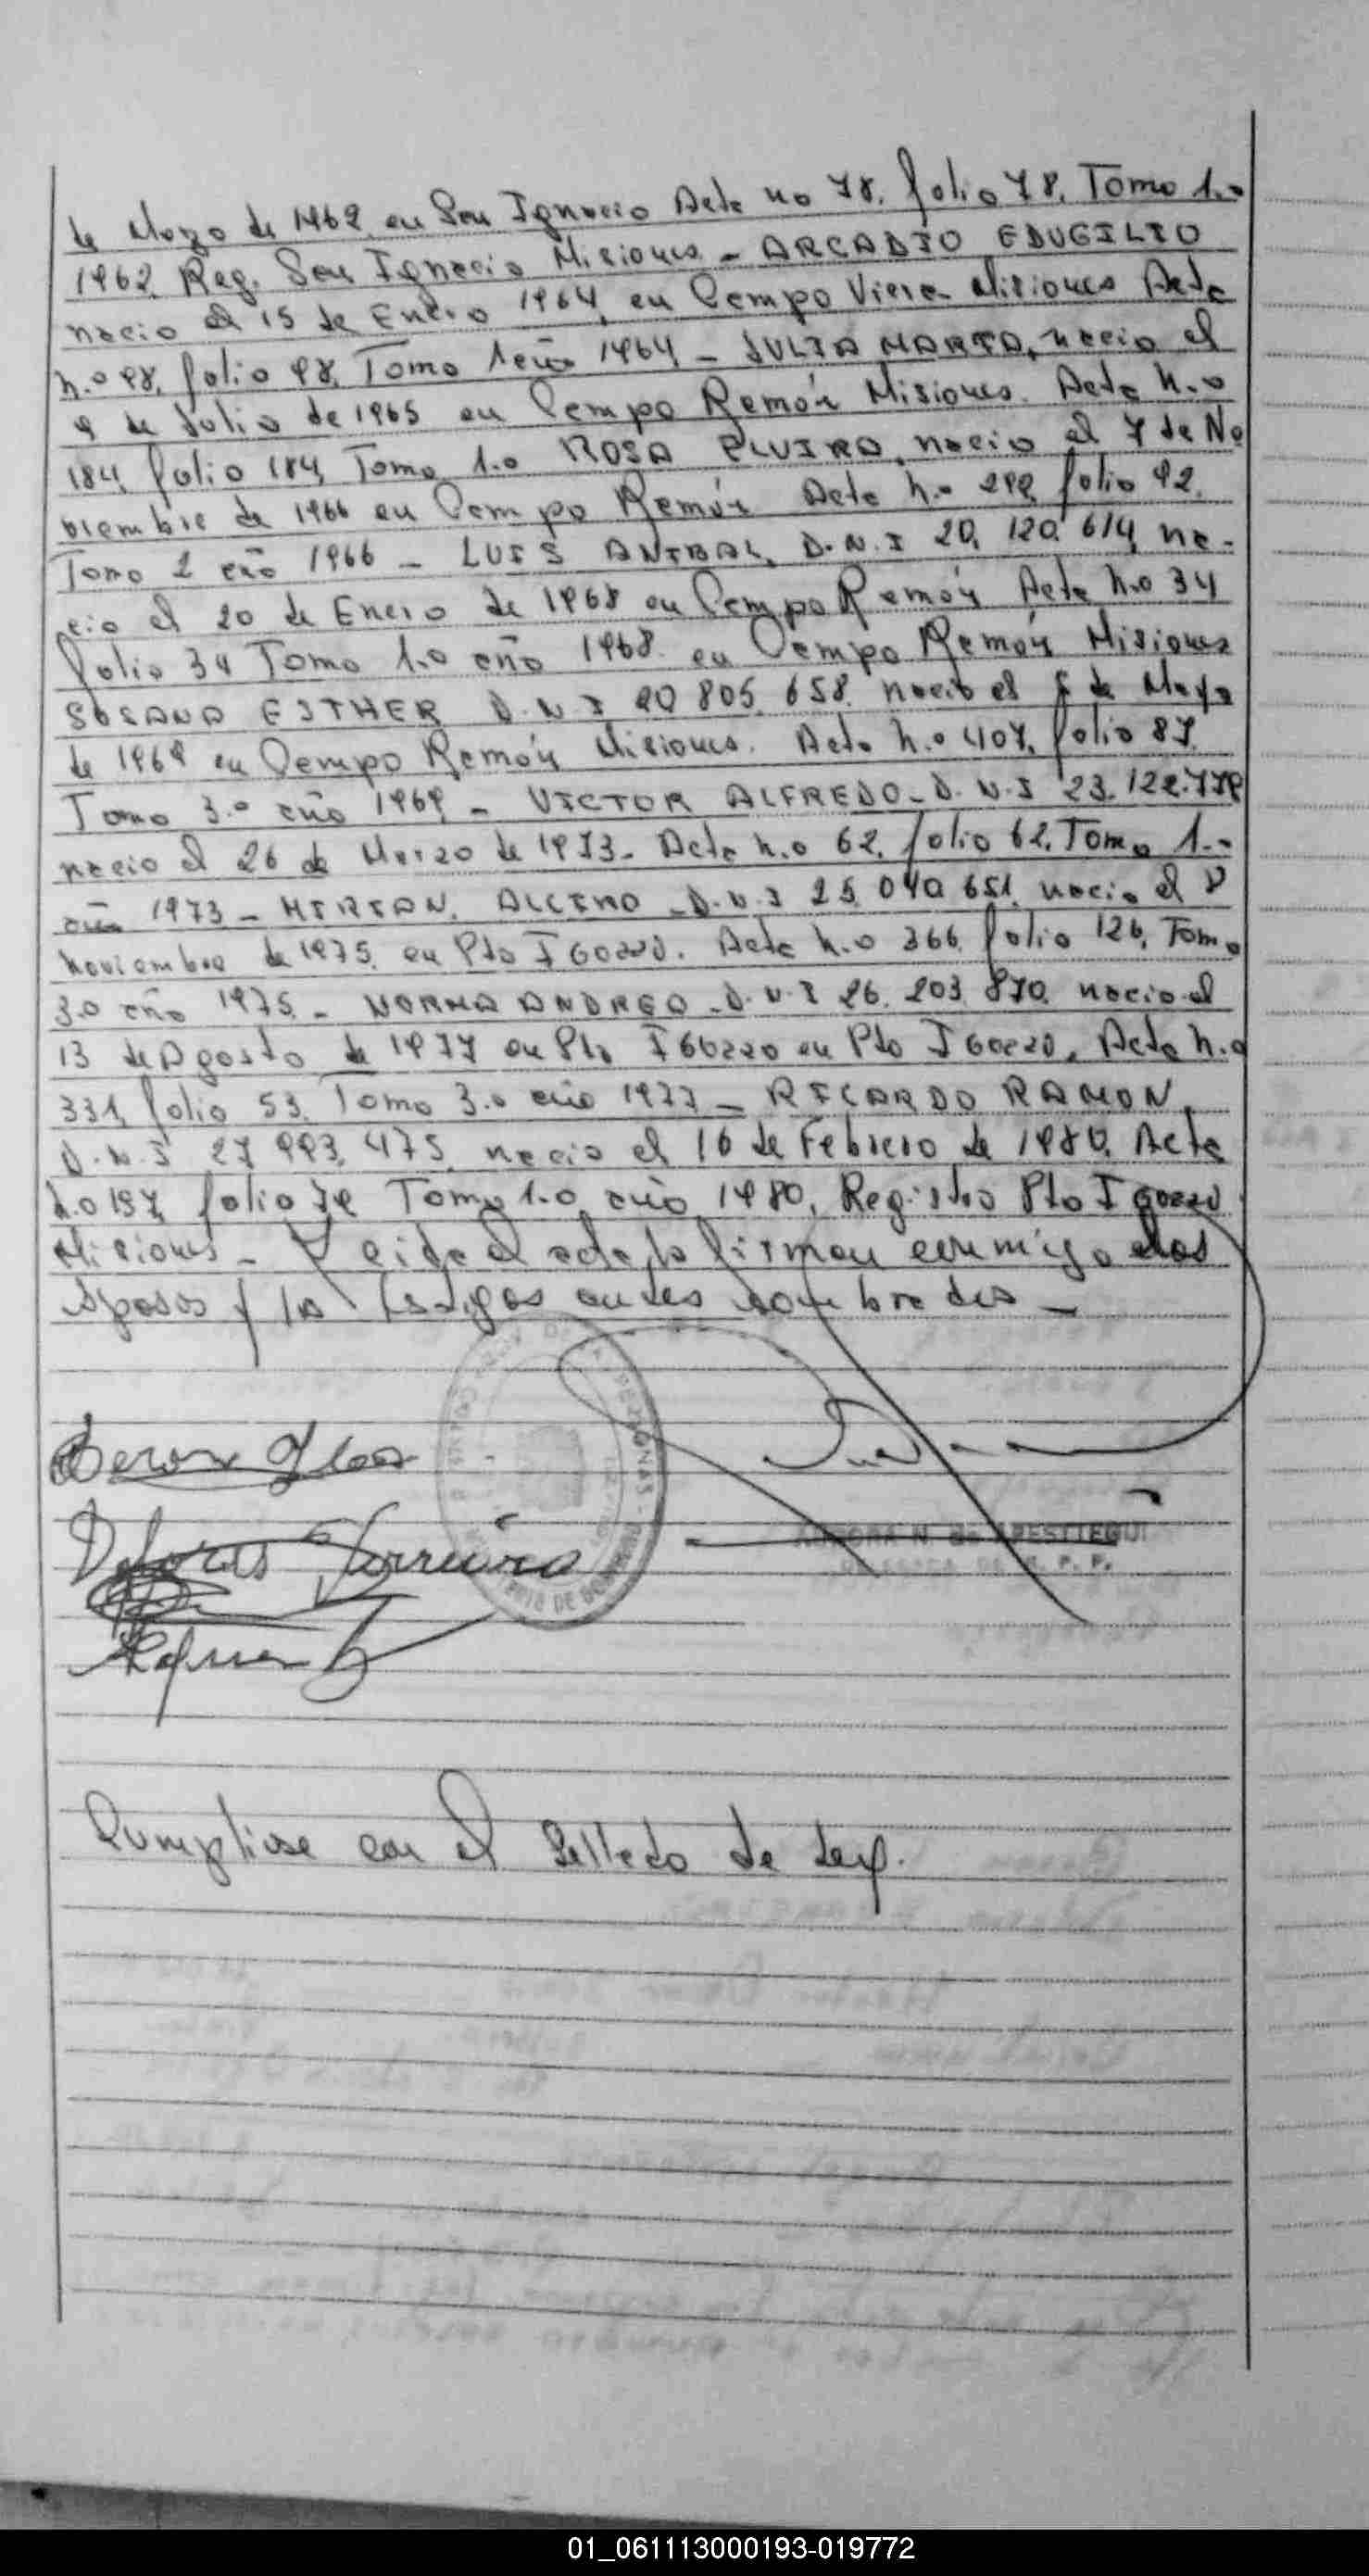 de Marzo de 1962 en San Ignacio Acta no 78, folio 78, Tomo 1.o
1962 Reg. San Ignacio Misiones - ARCADIO EDUGILIO
nacio el 15 de Enero 1964, en Campo Viera Misiones Acta
n.o 98, folio 98, Tomo 1 año 1964 - JULIA MARTA, nacio el
9 de Julio de 1965 en Campo Ramón Misiones. Acta N.o
184, folio 184, Tomo 1.o ROSA ELVIRA, nacio el 7 de No
viembre de 1966 en Campo Ramón Acta n.o 292 folio 92
Tomo 2 año 1966 - LUIS ANIBAL, D.N.I 20.120.614, na-
cio el 20 de Enero de 1968 en Campo Ramón Acta n.o 34
folio 34 Tomo 1.o año 1968. en Campo Ramón Misiones
SUSANA ESTHER D.N.I 20 805.658. nacio el de Mayo
de 1969 en Campo Ramón Misiones. Acta n.o 407, folio 87
Tomo 3.o año 1969 - VICTOR ALFREDO - D.N.I 23.122.779
nacio el 26 de Marzo de 1973 - Acta n.o 62, folio 62, Tomo 1.o
año 1973 - MIRIAN, ALCIRA - D.N.I 25.040.651, nacio el 8
noviembre de 1975, en Pto I Gozzo. Acta n.o 366, folio 126, Tomo
3.o año 1975 - NORMA ANDREA - D.N.I 26.203.870 nacio el
13 de Agosto de 1977 en Pto en Pto, Acta n.o
331, folio 53, Tomo 3.o año 1977 - RICARDO RAMON,
D.N.I 27 993.475, nacio el 16 de Febrero de 1980, Acta
n.o 197, folio 79 Tomo 1.o, año 1980, Registro Pto
Misiones - Leida el acta, la firman conmigo los
esposos y los testigos antes nombrados -
Dolores Ferreira
de ARESTTEGUI
Cumplióse con el Sellado de Ley.
01_061113000193-019772